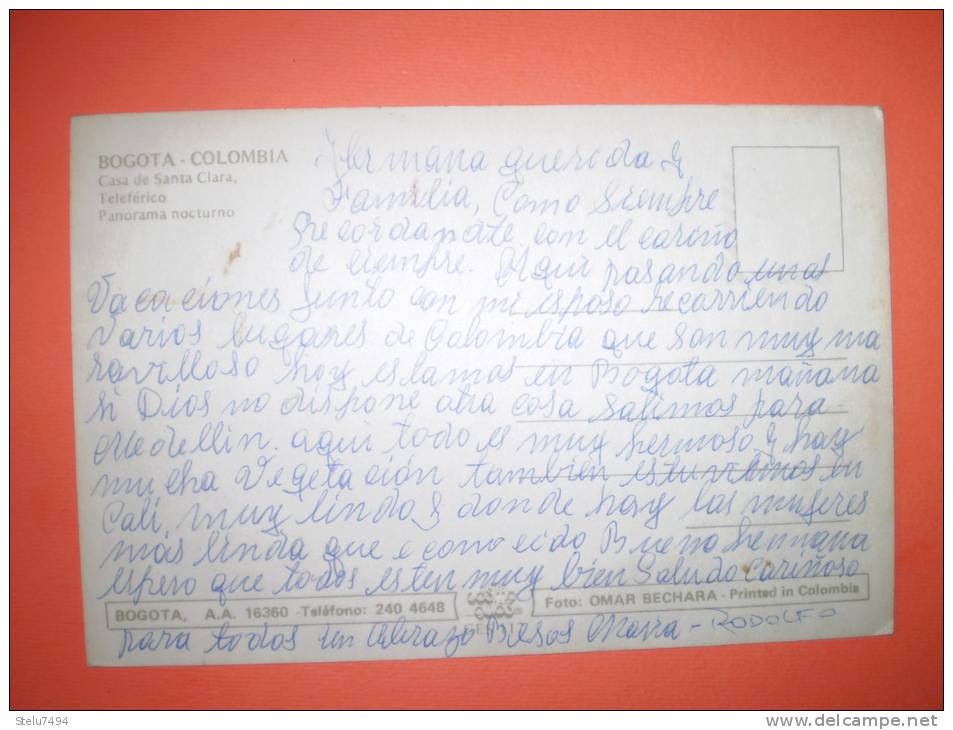 BOGOTA - COLOMBIA
Casa de Santa Clara,
Teleférico
Panorama nocturno
Hermana querida y
Familia, Como Siempre
recordandote con el cariño
de siempre. Aqui pasando unas
Vacaciones junto con mi esposo recorriendo
Varios lugares de Colombia que son muy ma
ravilloso hoy estamos en Bogota mañana
si Dios no dispone otra cosa salimos para
Medellin. aqui todo es muy hermoso y hay
mucha Vegetación tambien estuvimos en
Cali, muy lindo y donde hay las mujeres
más linda que e conocido Bueno hermana
espero que todos esten muy bien Saludo Cariñoso
BOGOTA, A.A. 16360 - Teléfono: 240 4648
Foto: OMAR BECHARA - Printed in Colombia
para todos un Abrazo Besos - RODOLFO
Stelu7494
www.delcampe.net